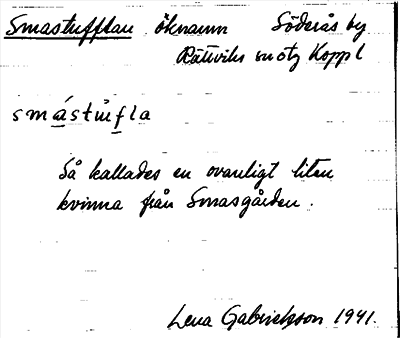 Smastufflan öknamn Söderås by
Rättviks snstg Koppl
smástùfla
Så kallades en ovanligt liten
kvinna från Smasgården.
Lena Gabrielsson 1941.